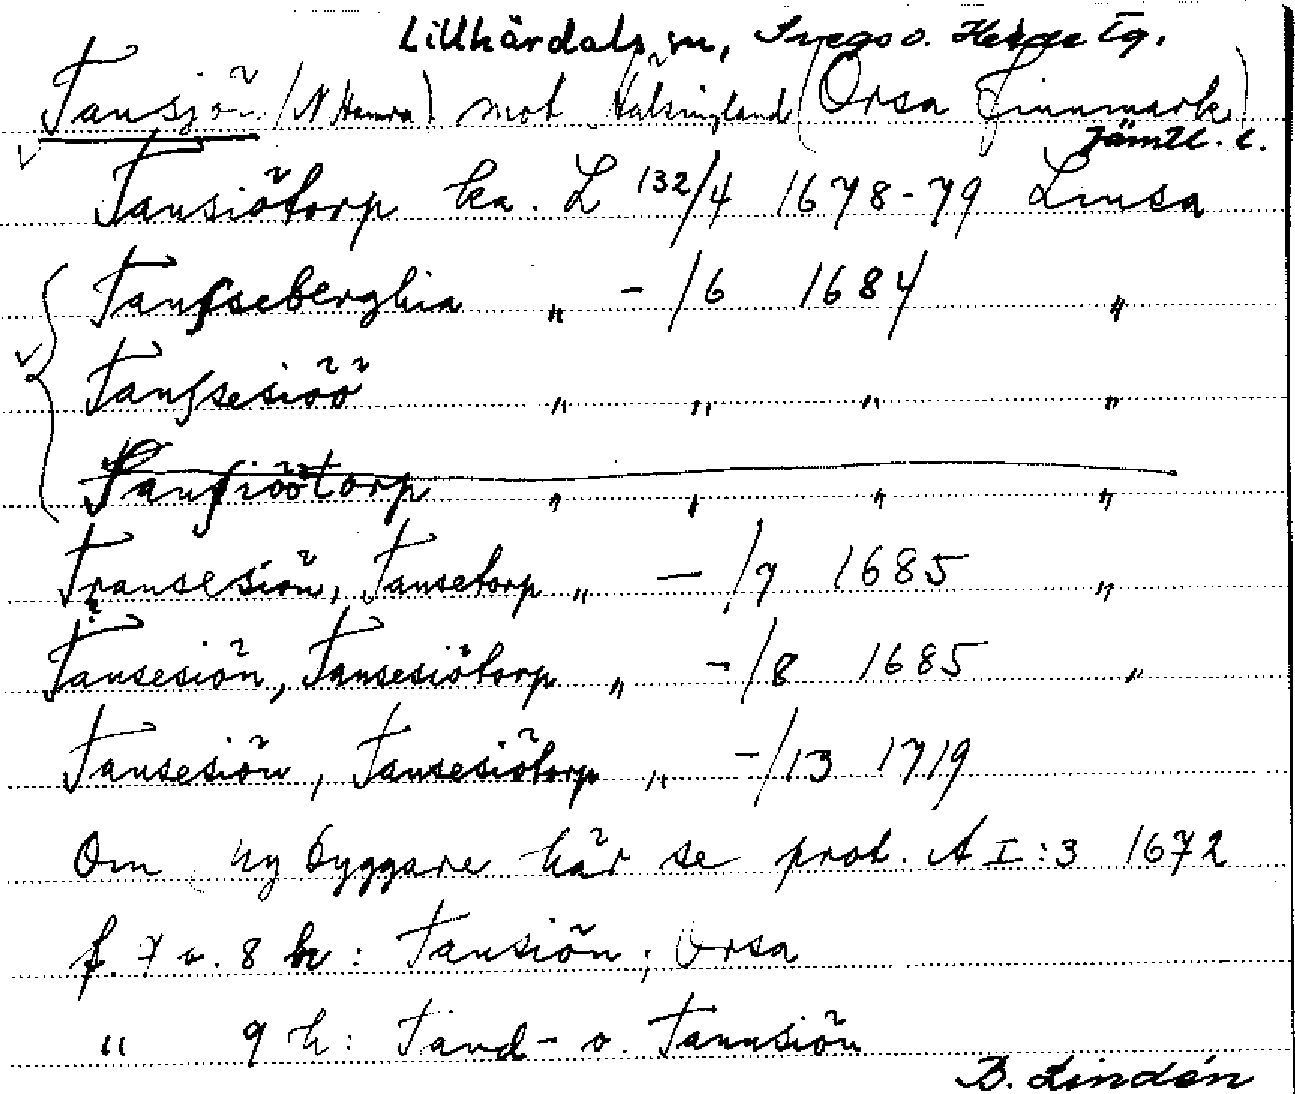 Lillhärdals sn, Svegs o. Hede tg.
Tansjön (N Hamra) mot Hälsingland (Orsa Finnmark)
Jämtl. l.
Tansiötorp ka. L 132/4 1678-79 Linsa
Tansseberghia " - /6 1684 "
Tanssesiöö " " " "
Tansiöötorp " " " "
Transesiön, Tansetorp " - /7 1685 "
?
Tansesiön, Tansesiötorp " - /8 1685 "
Tansesiön, Tansesiötorp " - /13 1719
Om nybyggare här se prot. A I:3 1672
f. 7 o. 8 h: Tansiön; Orsa
" 9 h: Tand- o. Tannsiön
B. Lindén